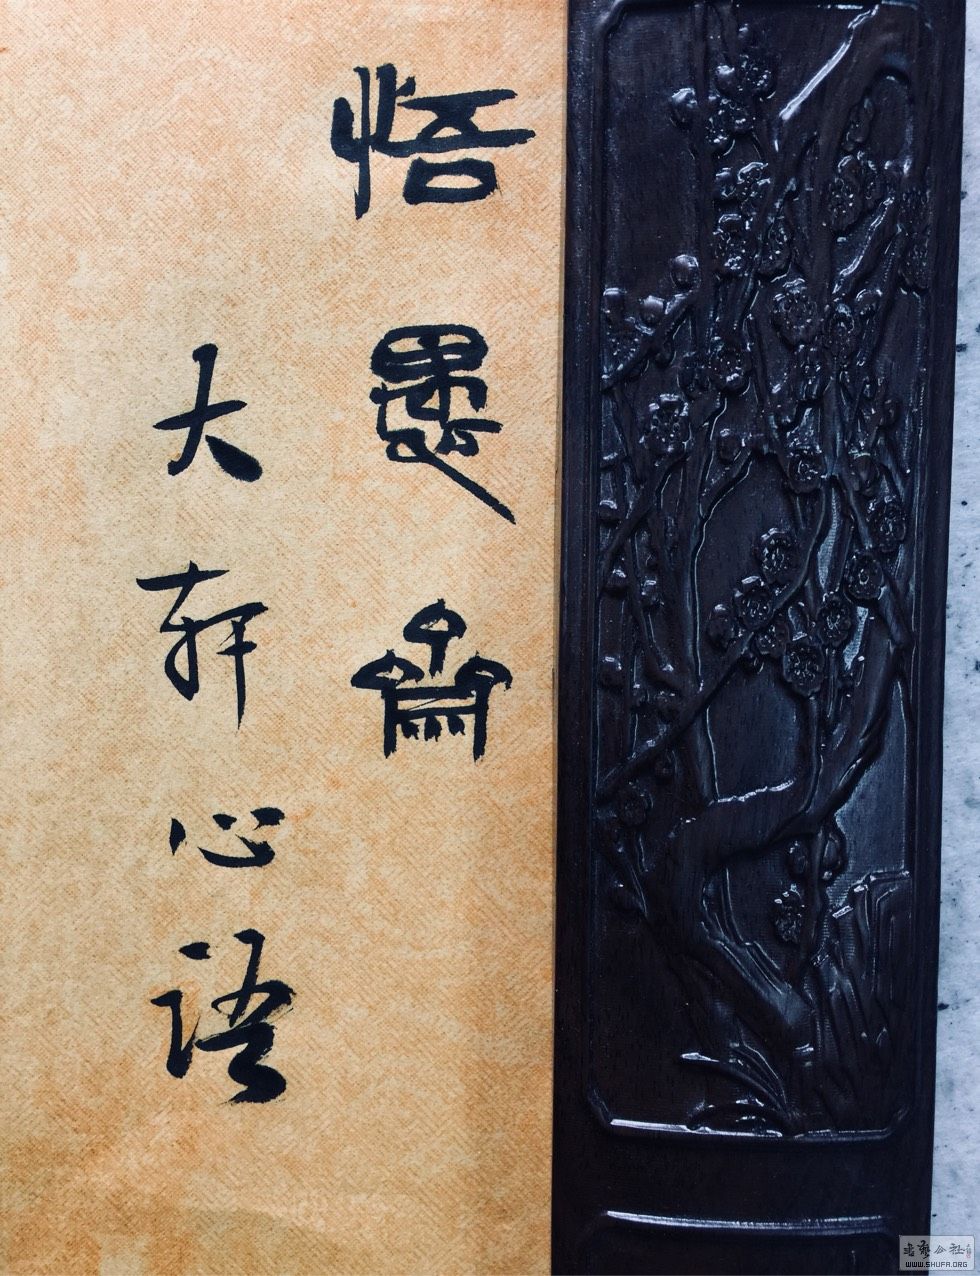 悟愚齋
大轩心语
書藝公社
WWW.SHUFA.ORG